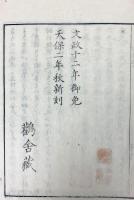 文政十二年御免
天保二年秋新刻
鶴舍藏